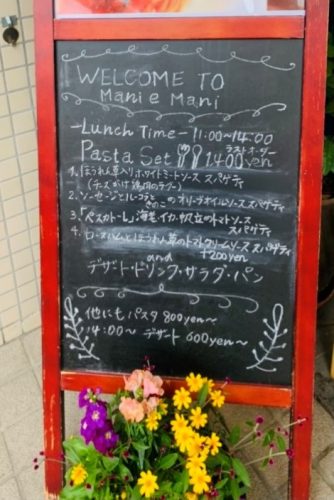 WELCOME TO
Mani e Mani
-Lunch Time- 11:00~14:00
ラストオーダー
Pasta Set 1400yen
1. ほうれん草入りホワイトミートソース スパゲティ
(チーズがけ 鶏肉のラグー)
2. ソーセージとルーコラと
きのこのオリーブオイルソース スパゲティ
3. 「ペスカトーレ」海老、イカ、帆立のトマトソース
スパゲティ
4. ロースハムとほうれん草のトマトクリームソース スパゲティ
+200yen
and
デザート・ドリンク・サラダ・パン
他にも パスタ 800yen~
14:00~ デザート 600yen~